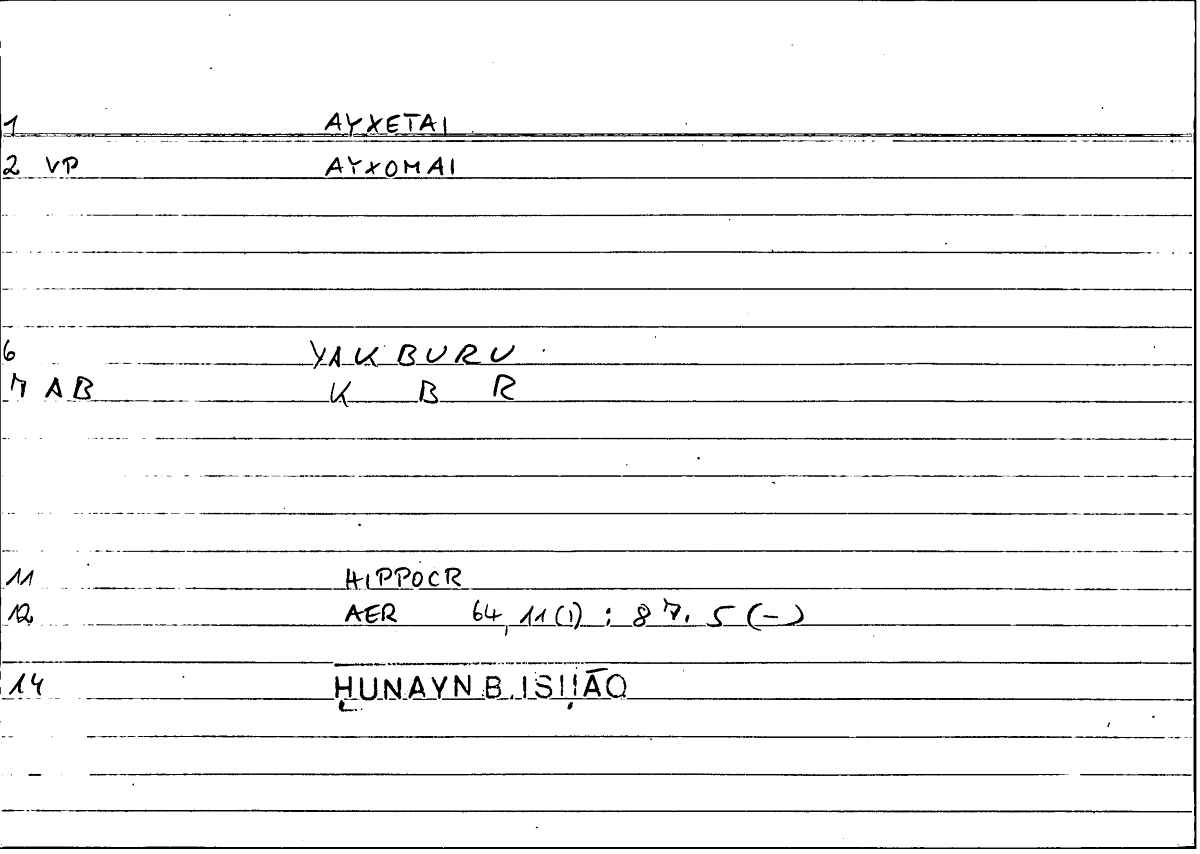 1 AYXETAI
2 VP AYXOMAI
6 YAKBURU
7 AB K B R
11 HIPPOCR
12 AER 64,11(1) : 87.5(-)
14 ḤUNAYN B. ISḤĀQ